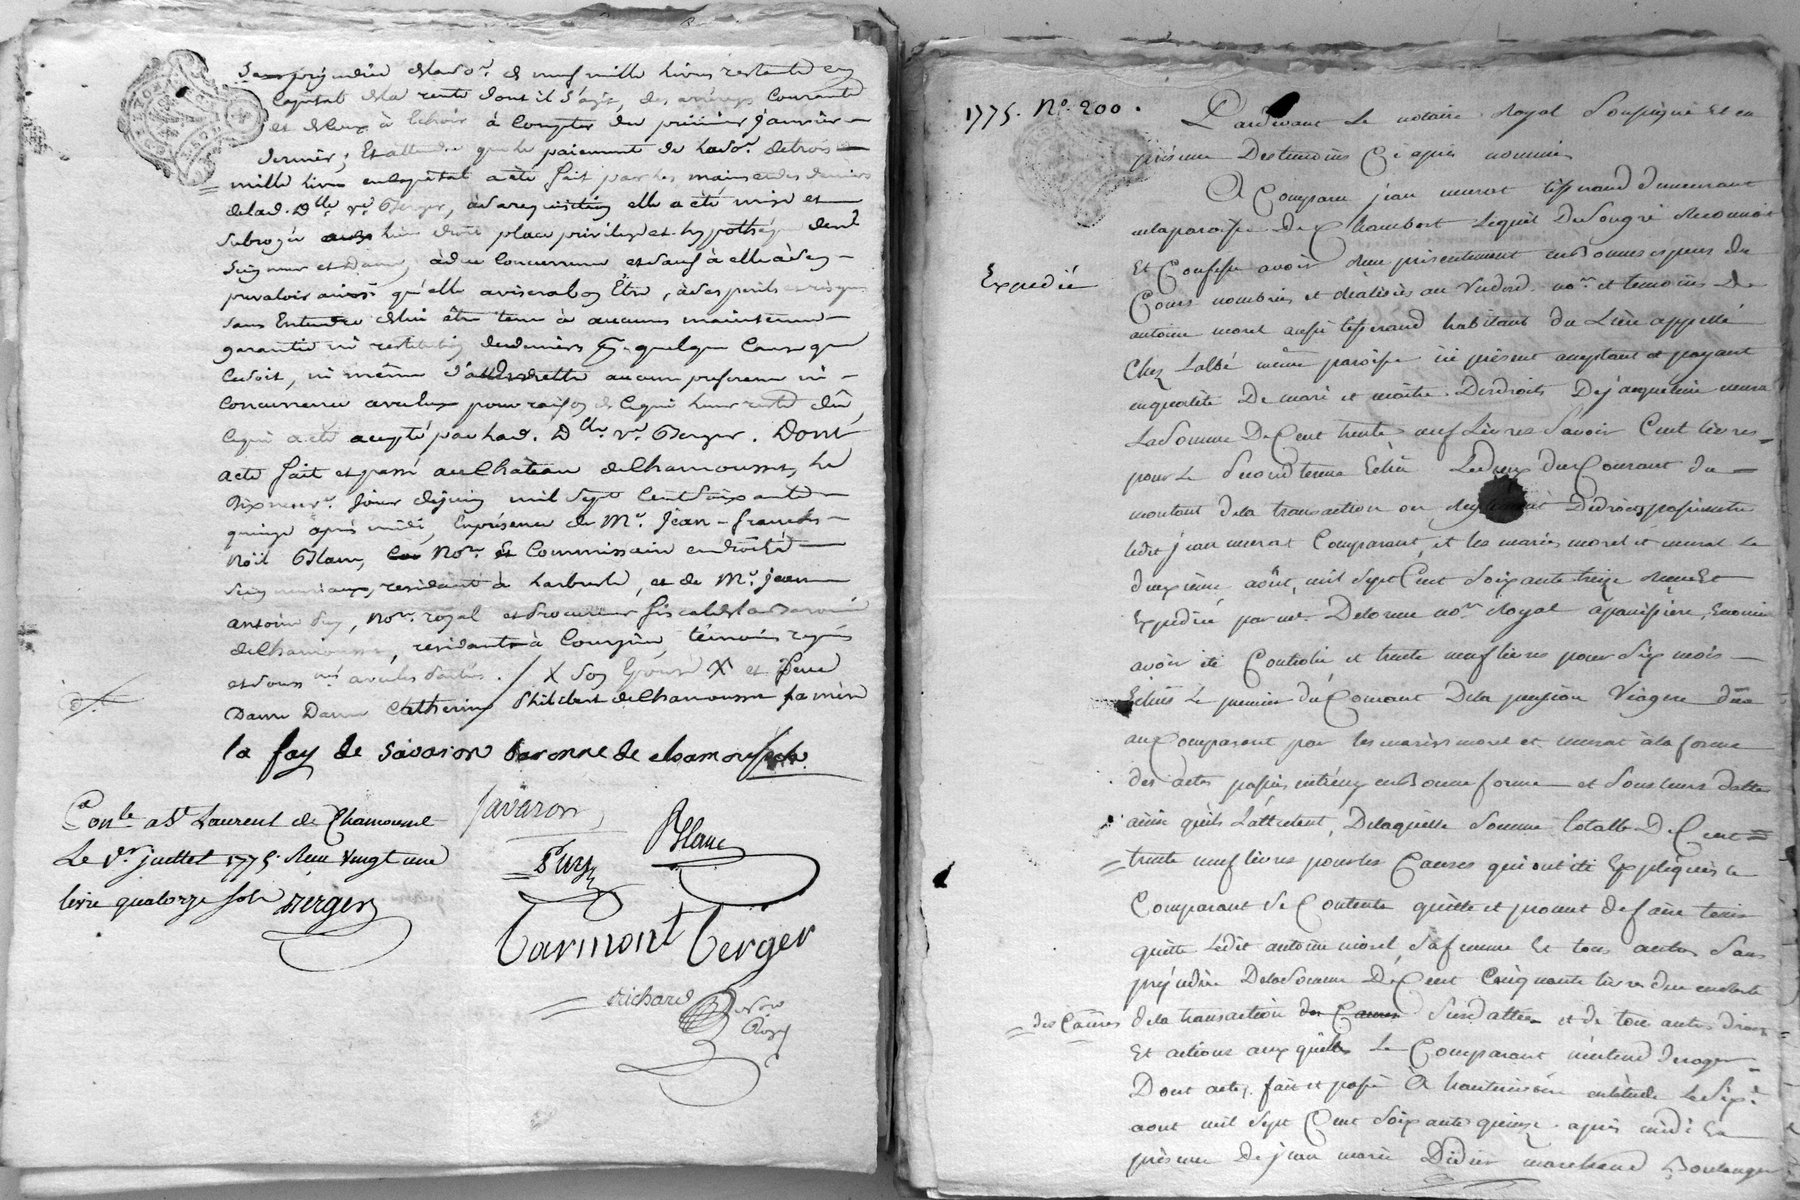 Sans préjudice de lad. so.e de neuf mille livres restante en
Capital de la rente dont il s'agit, des arrérages Courants
et de ceux à Echoir à Compter du premier Janvier
dernier; Et attendu que le paiement de lad. so.e de trois
mille livres en Capital a été fait par les mains et des deniers
de lad. D.lle v.e Berger, à sa requisition elle a été mise et
subrogée lieu droit place privilege et hypothéque desd.
Seigneur et Dame, à due Concurrence et sauf à elle à s'en
prevaloir ainsi qu'elle avisera bon Être, à ses perils et risques
sans Entendre être tenu à aucune maintenue
garantie ni restitution de deniers pr. quelque Cause que
Ce soit, ni même aucune preference ni
Concurrence avec eux pour raison de Ce qui leur reste dû,
Ce qui a été accepté par lad. D.lle v.e Berger. Dont
acte fait et passé au Château de Chamousset, le
Dix neuv.e jour de juin mil sept Cent soixante
quinze après midi, En présence de M.e Jean-françois
Noël Blanc, No.re Et Commissaire en droits
seigneuriaux, residant à Larbresle, et de M.e jean
antoine Puy, No.re royal et Procureur fiscal de la Baronnie
de Chamousset, residant à Courzieu, témoins requis
et souss.nés avec les Parties. / X son Epouse X et feue
Dame Dame Catherine Philibert de Chamousset sa mère
la fay de Savaron baronne de chamousset
Con.lé a S.t Laurent de Chamousset
Savaron
Blanc
Le 1.er juillet 1775. Reçu Vingt une
Puy
livre quatorze sols Berger
Tarmont Berger
Richard
No.re Royal
1775. N.o 200.
Pardevant Le notaire Royal Soussigné et en
présence Des temoins Cy après nommés
A Comparu jean murat tisserand demeurant
en la paroisse De Chambost Lequel De son gré Reconnoit
Et Confesse avoir Reçu présentement en Bonnes especes du
Expedié
Cours nombrées et réalisées au Vu desd. no.re et temoins De
antoine morel aussi tisserand habitant du Lieu appellé
Chez Labbé même paroisse ici présent acceptant et payant
en qualité De mari et maître Des droits De jacqueline murat
La Somme De Cent trente neuf Livres Savoir Cent livres
pour Le Second terme Echû Le deux du Courant du
montant de la transaction ou Reglement De droits passé entre
ledit jean murat Comparant, et les mariés morel et murat Le
deuxieme août, mil sept Cent soixante treize Reçu Et
Expedié par m.e Delorme no.re Royal à panissiere, Enoncé
avoir été Controlé et trente neuf livres pour Six mois
Echus Le premier du Courant De la pension Viagere dûe
au Comparant par les mariés morel et murat à la forme
des actes passés entr'eux en Bonne forme et sous leurs dattes
ainsi qu'ils L'attestent, De laquelle Somme totalle De Cent
trente neuf livres pour les Causes qui ont été Expliquées le
Comparant Se Contente quitte et promet de faire tenir
quitte Ledit antoine morel, Sa femme Et tous autres Sans
préjudice De la Somme De Cent Cinquante livres due en reste
des Causes
de la transaction des Causes Susdattée et de tous autres droits
Et actions auxquels Le Comparant n'entend deroger
Dont acte, fait et passé A hauterivoire en l'etude Le Six
aout mil sept Cent Soixante quinze après midi En
présence De jean marie Didier marchand Boulanger